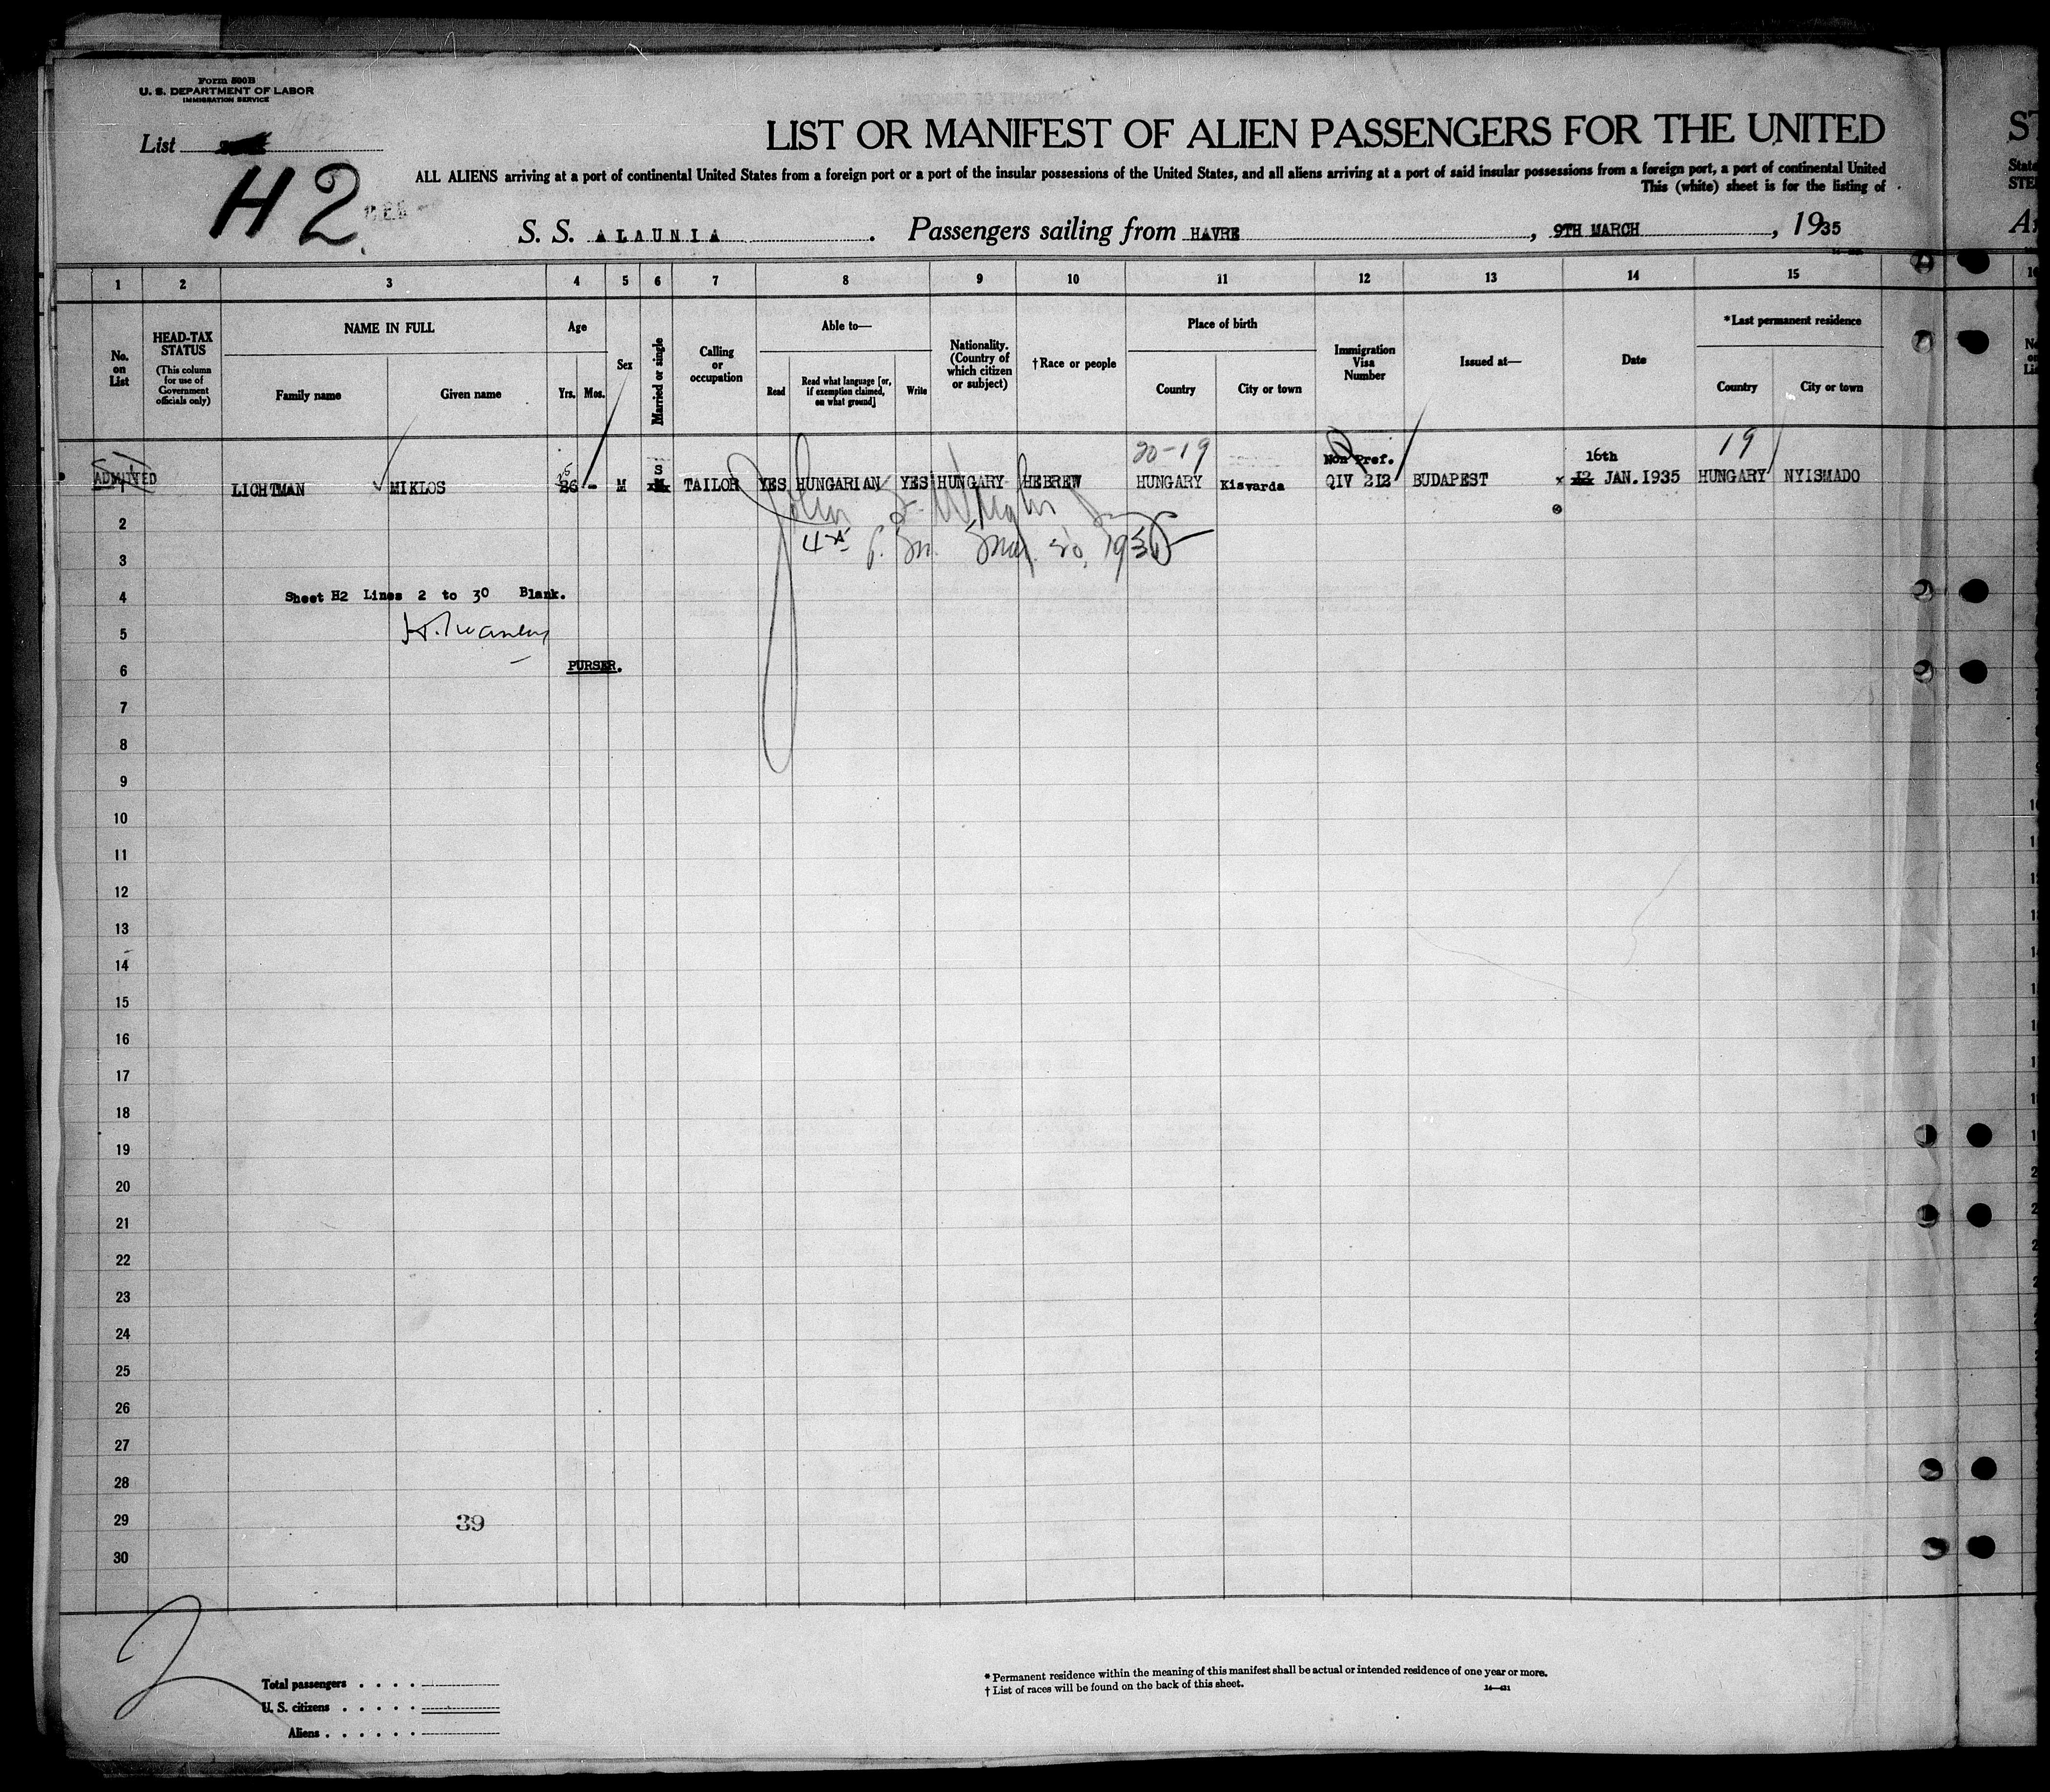 Form 500B
U. S. DEPARTMENT OF LABOR
IMMIGRATION SERVICE
List
H 2
LIST OR MANIFEST OF ALIEN PASSENGERS FOR THE UNITED
ALL ALIENS arriving at a port of continental United States from a foreign port or a port of the insular possessions of the United States, and all aliens arriving at a port of said insular possessions from a foreign port, a port of continental United
This (white) sheet is for the listing of
S. S. ALAUNIA . Passengers sailing from HAVRE , 9TH MARCH , 1935
1 2 3 4 5 6 7 8 9 10 11 12 13 14 15
No. on List
HEAD-TAX STATUS
(This column for use of Government officials only)
NAME IN FULL
Family name Given name
Age
Yrs. Mos.
Sex
Married or single
Calling or occupation
Able to—
Read
Read what language [or, if exemption claimed, on what ground]
Write
Nationality. (Country of which citizen or subject)
†Race or people
Place of birth
Country City or town
Immigration Visa Number
Issued at—
Date
*Last permanent residence
Country City or town
20-19 Non Pref. 16th 19
ADMITTED LICHTMAN MIKLOS 26 - M S TAILOR YES HUNGARIAN YES HUNGARY HEBREW HUNGARY Kisvarda QIV 212 BUDAPEST x 12 JAN.1935 HUNGARY NYISMADO
2
3
4 Sheet H2 Lines 2 to 30 Blank.
5
6 PURSER.
7
8
9
10
11
12
13
14
15
16
17
18
19
20
21
22
23
24
25
26
27
28
29 39
30
2
Total passengers . . . .
U. S. citizens . . . . .
Aliens . . . . . .
* Permanent residence within the meaning of this manifest shall be actual or intended residence of one year or more.
† List of races will be found on the back of this sheet.